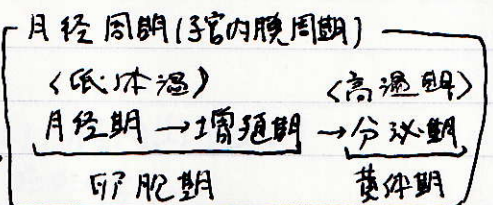 月経周期(子宮内膜周期)
〈低体温〉 〈高温期〉
月経期→増殖期→分泌期
卵胞期 黄体期